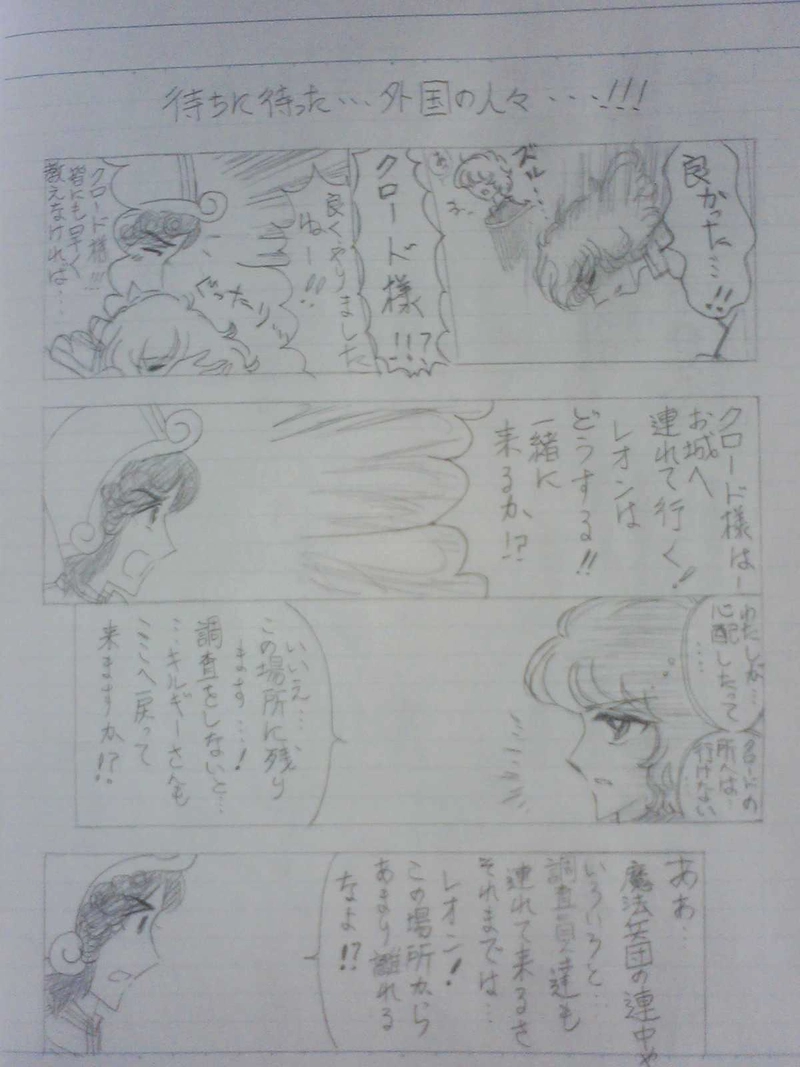 待ちに待った・・・外国の人々・・・!!!
良かった…!!
ズル…
お…
クロード様!!?
良くやりました
ねー!!
ぐったり
クロード様!!!
皆にも早く
教えなければ…
クロード様はー
お城へ
連れて行く!
レオンは
どうする!!
一緒に
来るか!?
わたしが…
心配したって
……
クロードの
所へは…
行けない
いいえ…
この場所に残り
ます…!
調査をしないと…
…キルギーさんも
ここへ戻って
来ますか!?
ああ…
魔法兵団の連中や
いろいろと…
調査員達も
連れて来るさ
それまでは…
レオン!
この場所から
あまり離れる
なよ!?